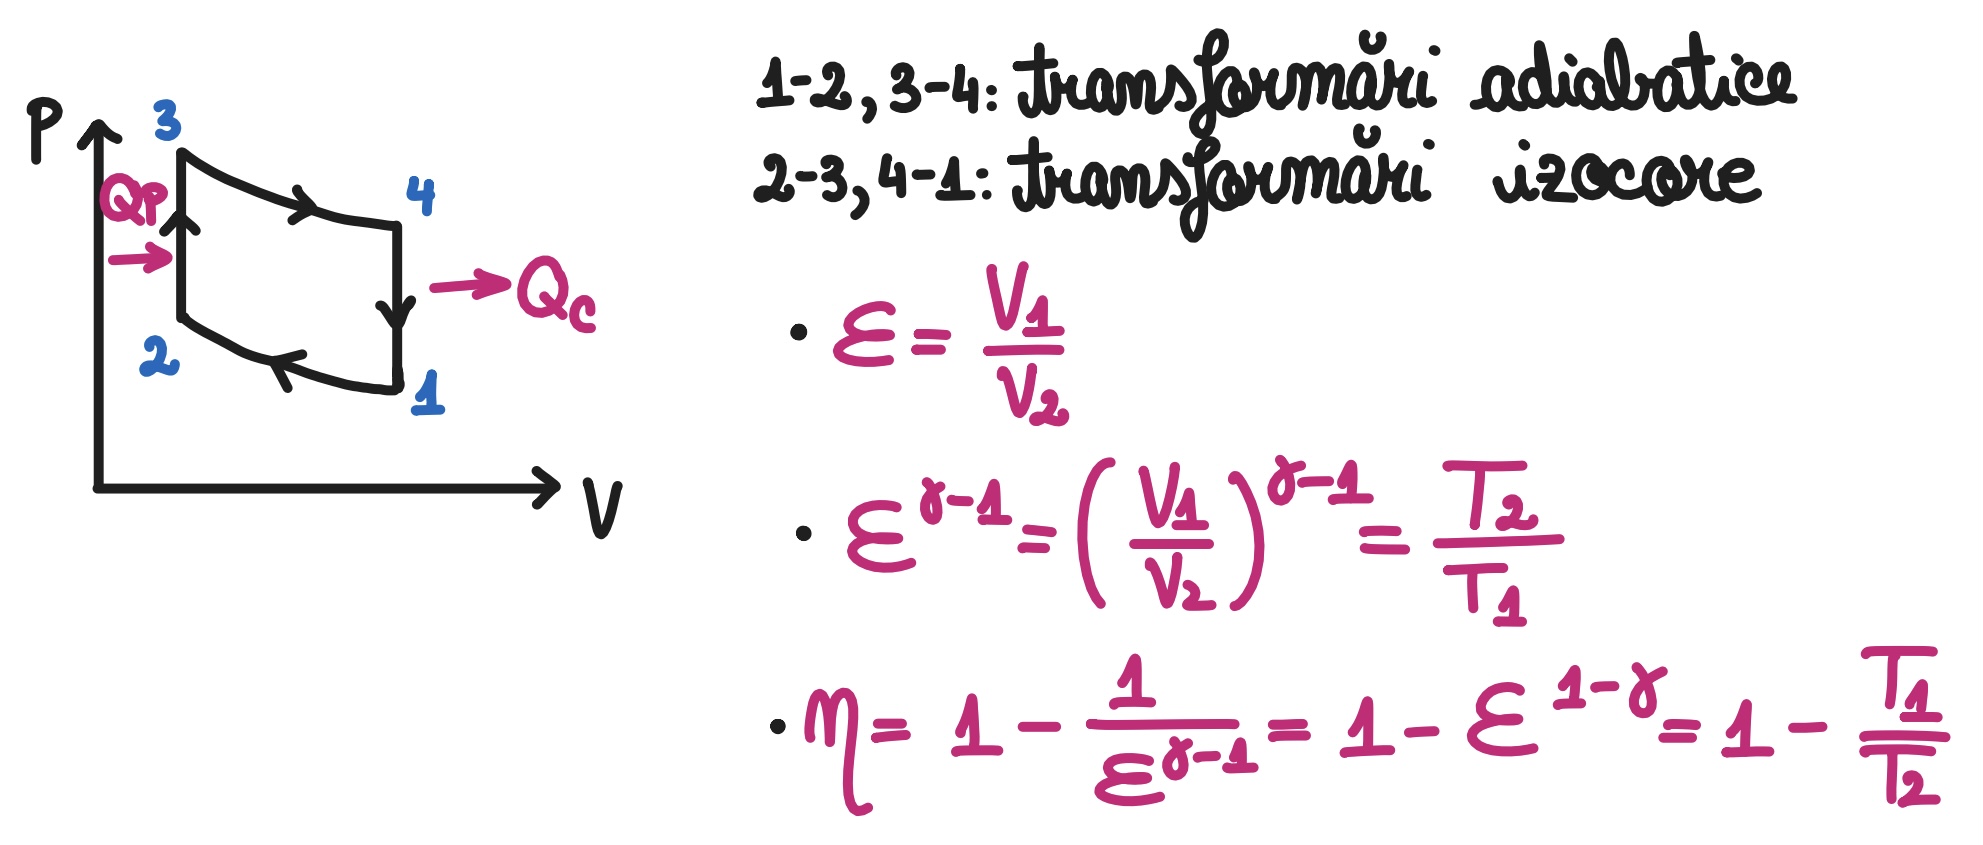 P
3
4
Qp
Qc
2
1
V
1-2, 3-4: transformări adiabatice
2-3, 4-1: transformări izocore
• ε = V₁/V₂
• ε^(γ-1) = (V₁/V₂)^(γ-1) = T₂/T₁
• η = 1 - 1/ε^(γ-1) = 1 - ε^(1-γ) = 1 - T₁/T₂